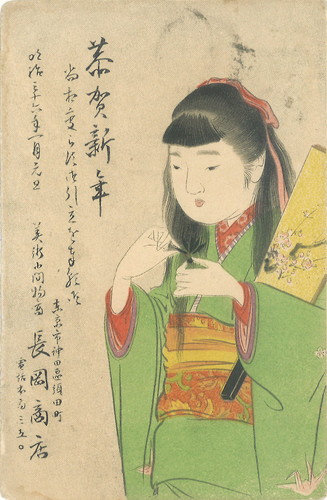 恭賀新年
尚相変らず御引立を奉願候
明治三十六年一月元旦
東京市神田區須田町
美術小間物商 長岡商店
電話本局三五〇